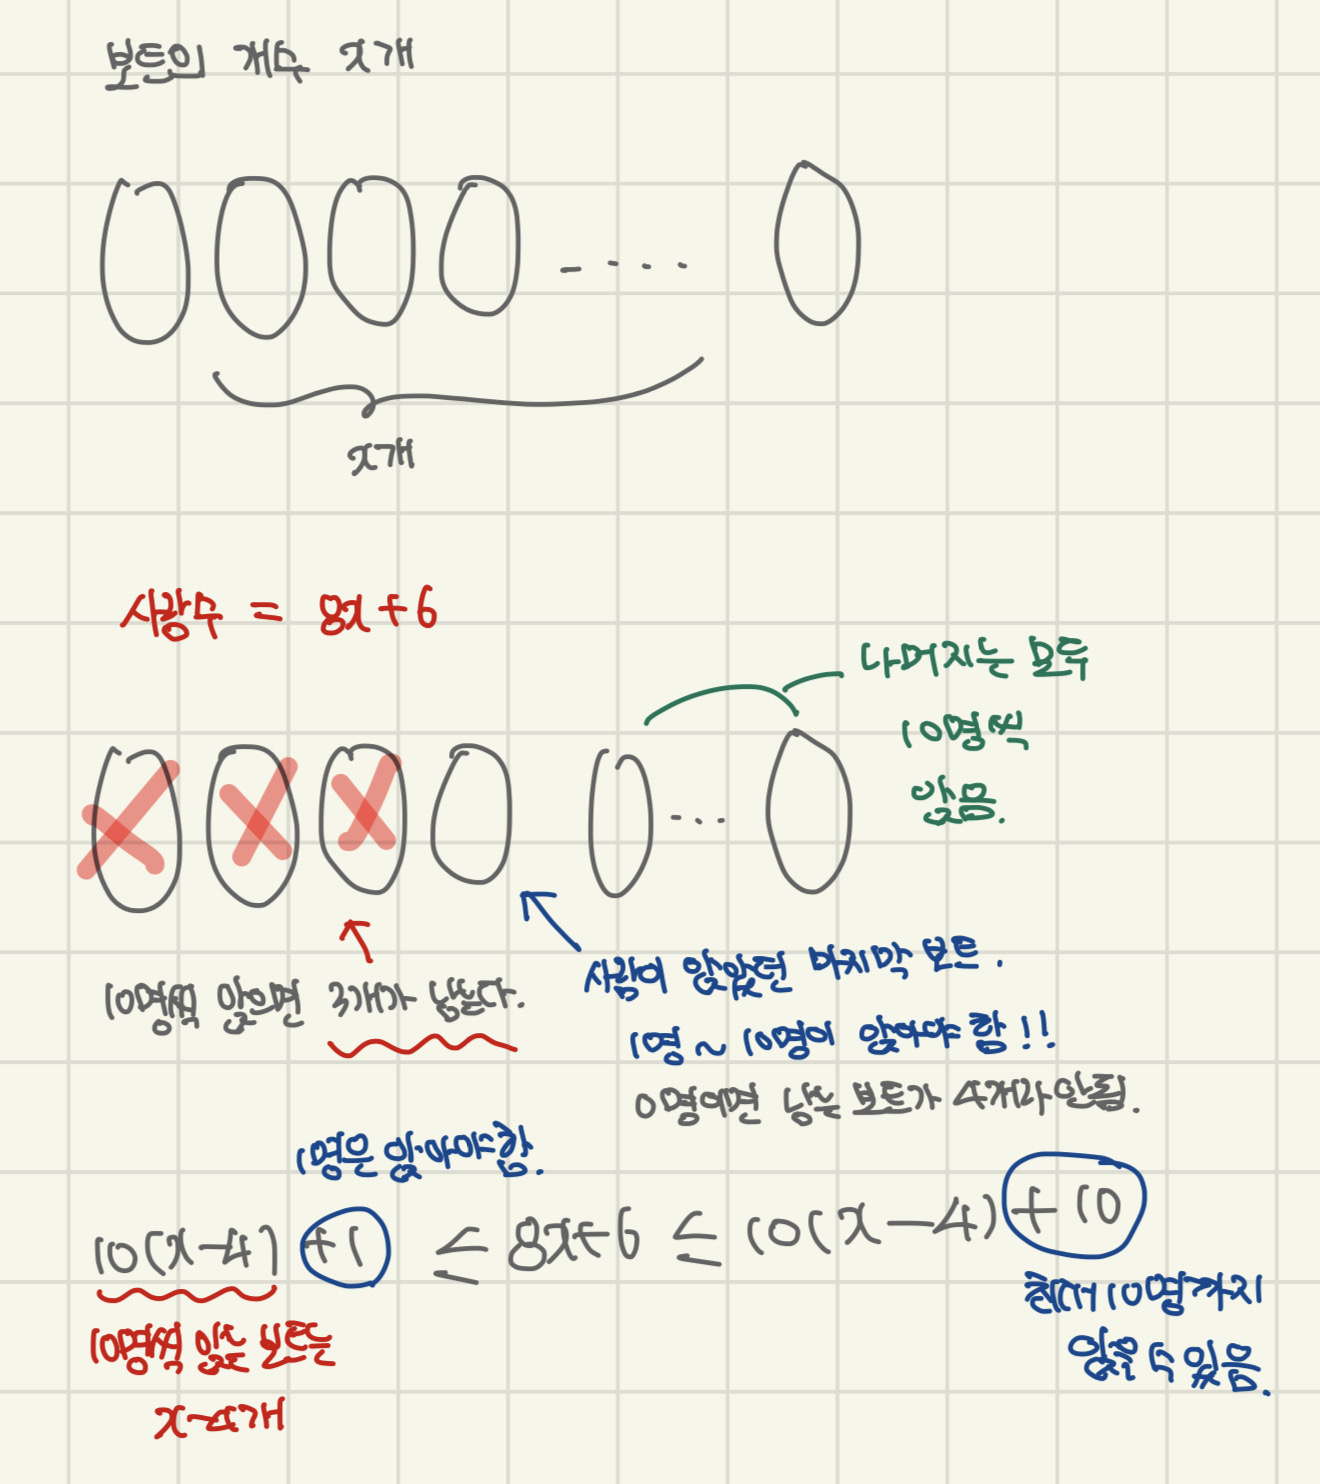 보트의 개수 x개
x개
사람수 = 8x+6
나머지는 모두
10명씩
앉음.
10명씩 앉으면 3개가 남는다.
사람이 앉았던 마지막 보트.
1명 ~ 10명이 앉아야 함!!
0명이면 남는 보트가 4개라 안됨.
1명은 앉아야함.
10(x-4) +1 ≤ 8x+6 ≤ 10(x-4) +10
10명씩 앉는 보트는
x-4개
최대 10명까지
앉을 수 있음.